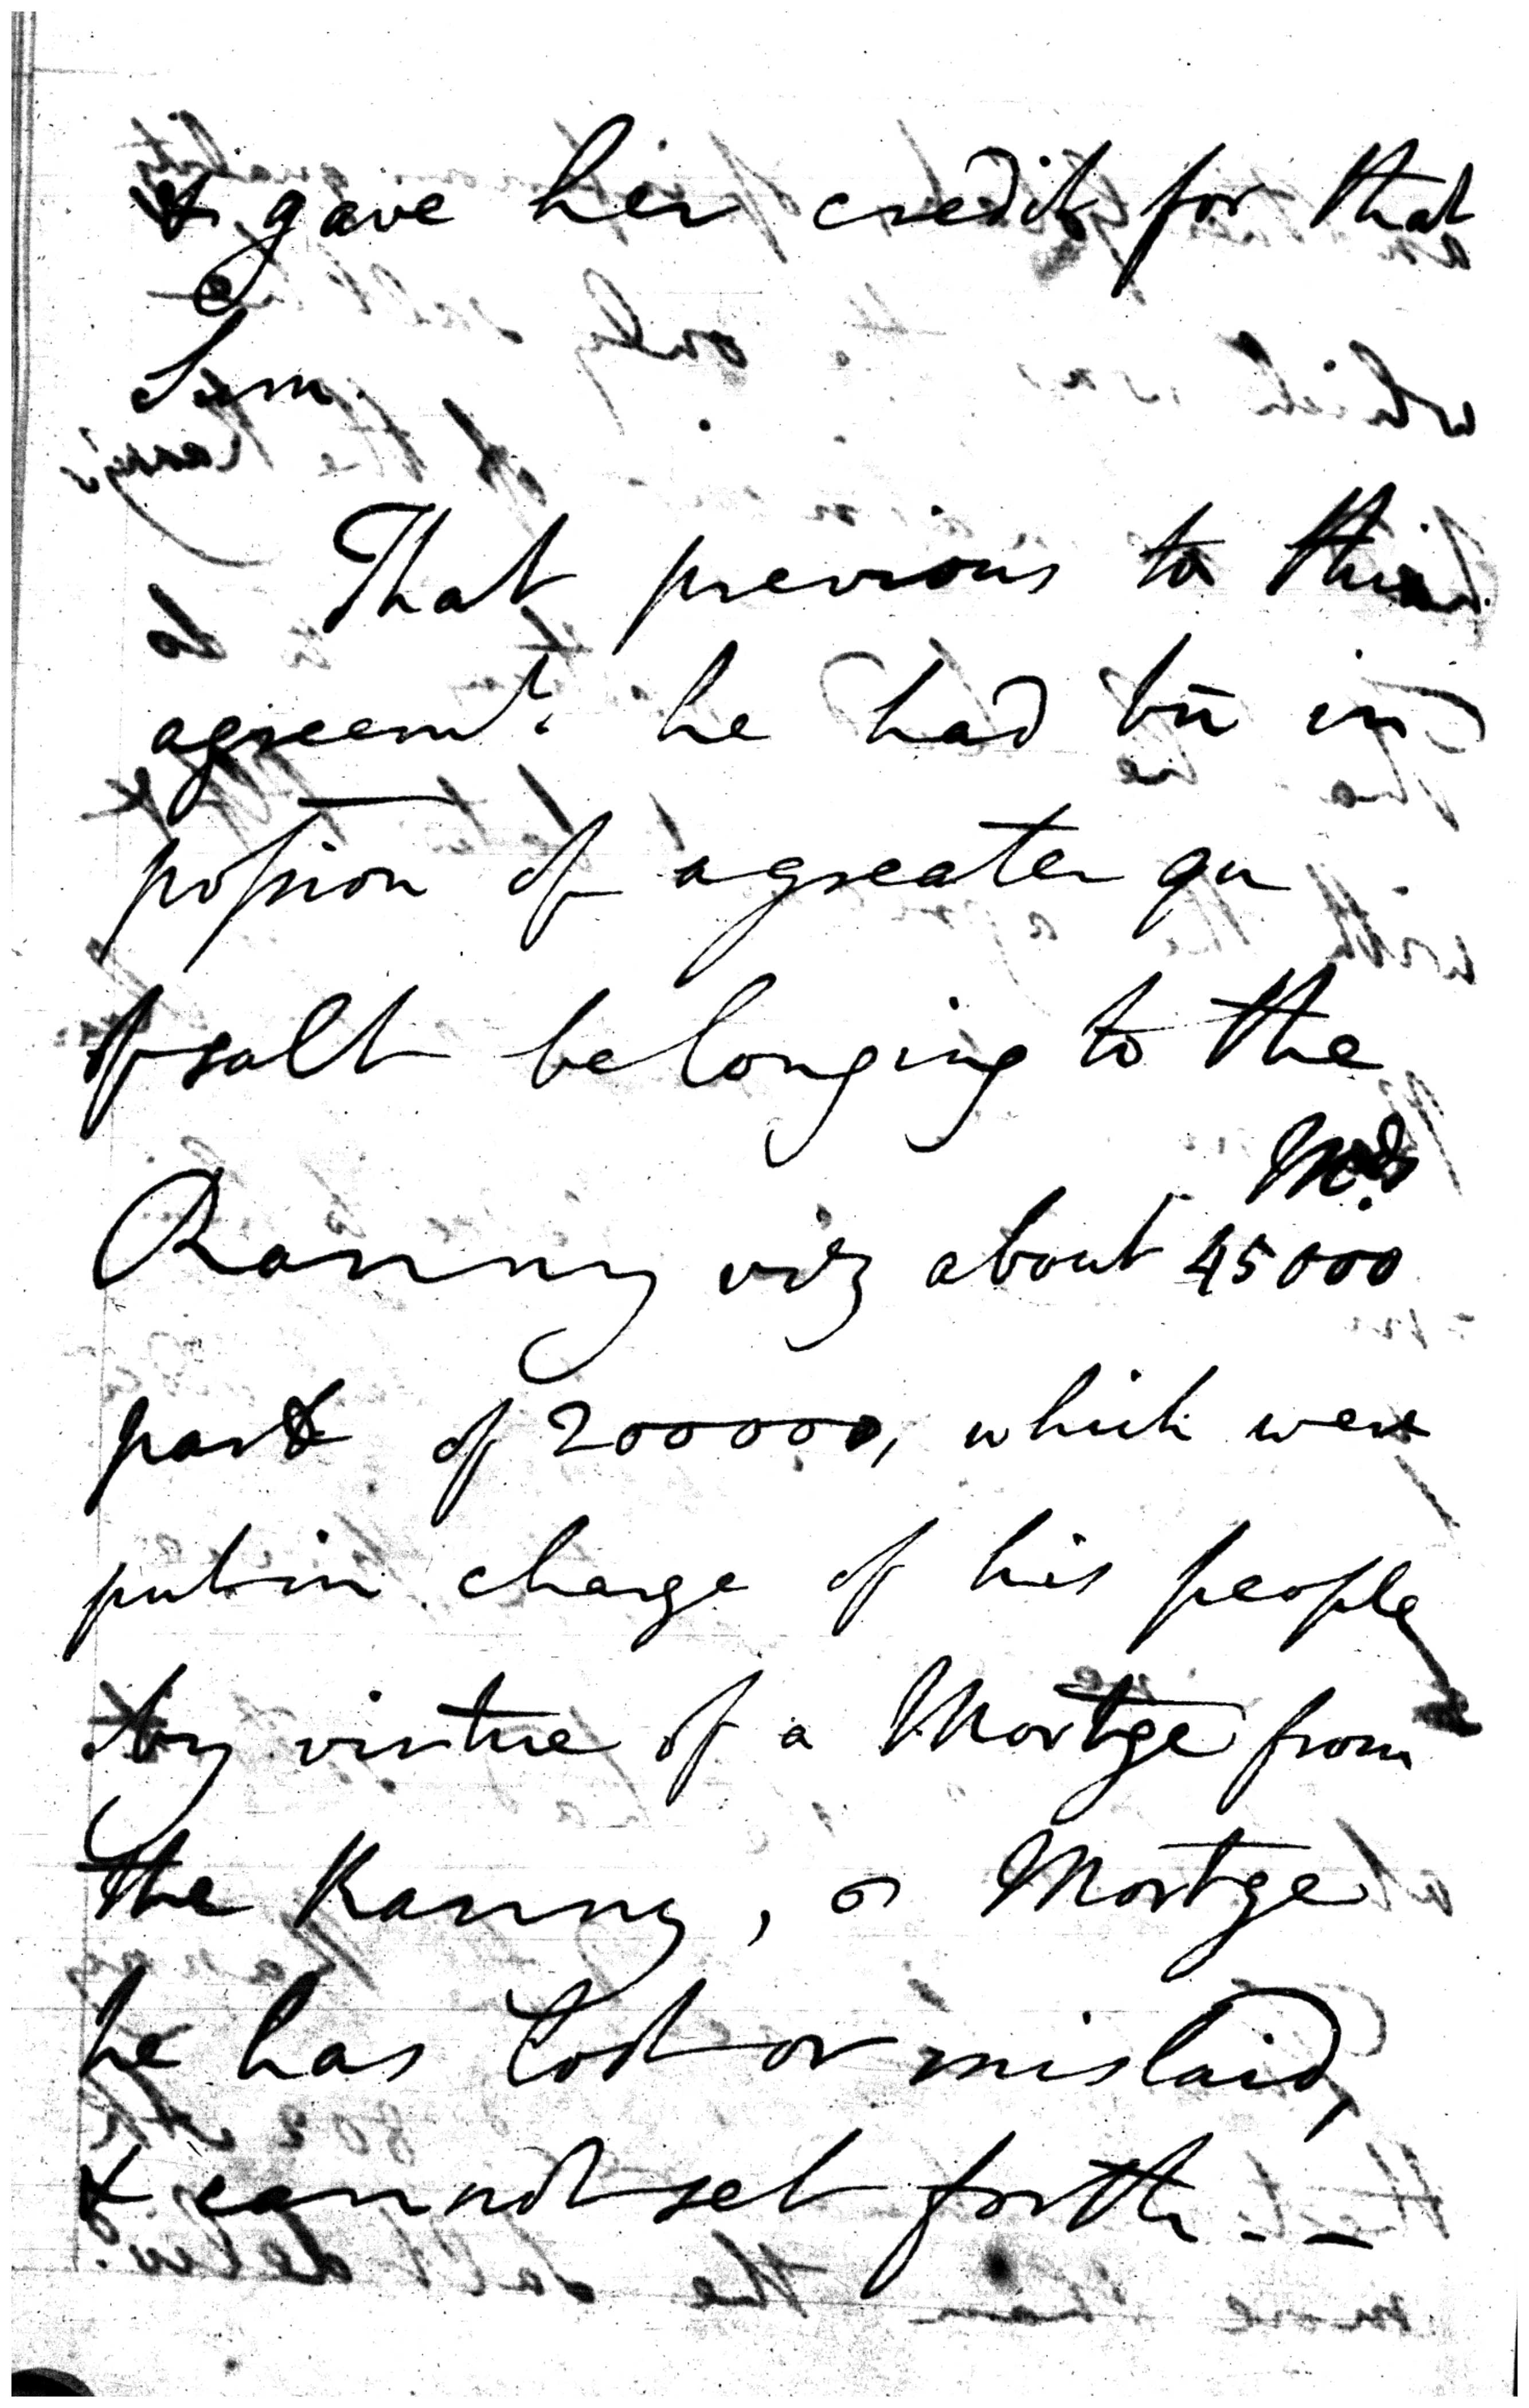 & gave her credit for that
Sum.
That previous to this
agreemt. he had bn in
possion of a greater qu
of salt belonging to the
Mds
Ranny viz about 45000
part of 200000, which were
put in charge of his people
by virtue of a Mortge from
the Ranny, or Mortge
he has lost or mislaid,
& cannot set forth - -